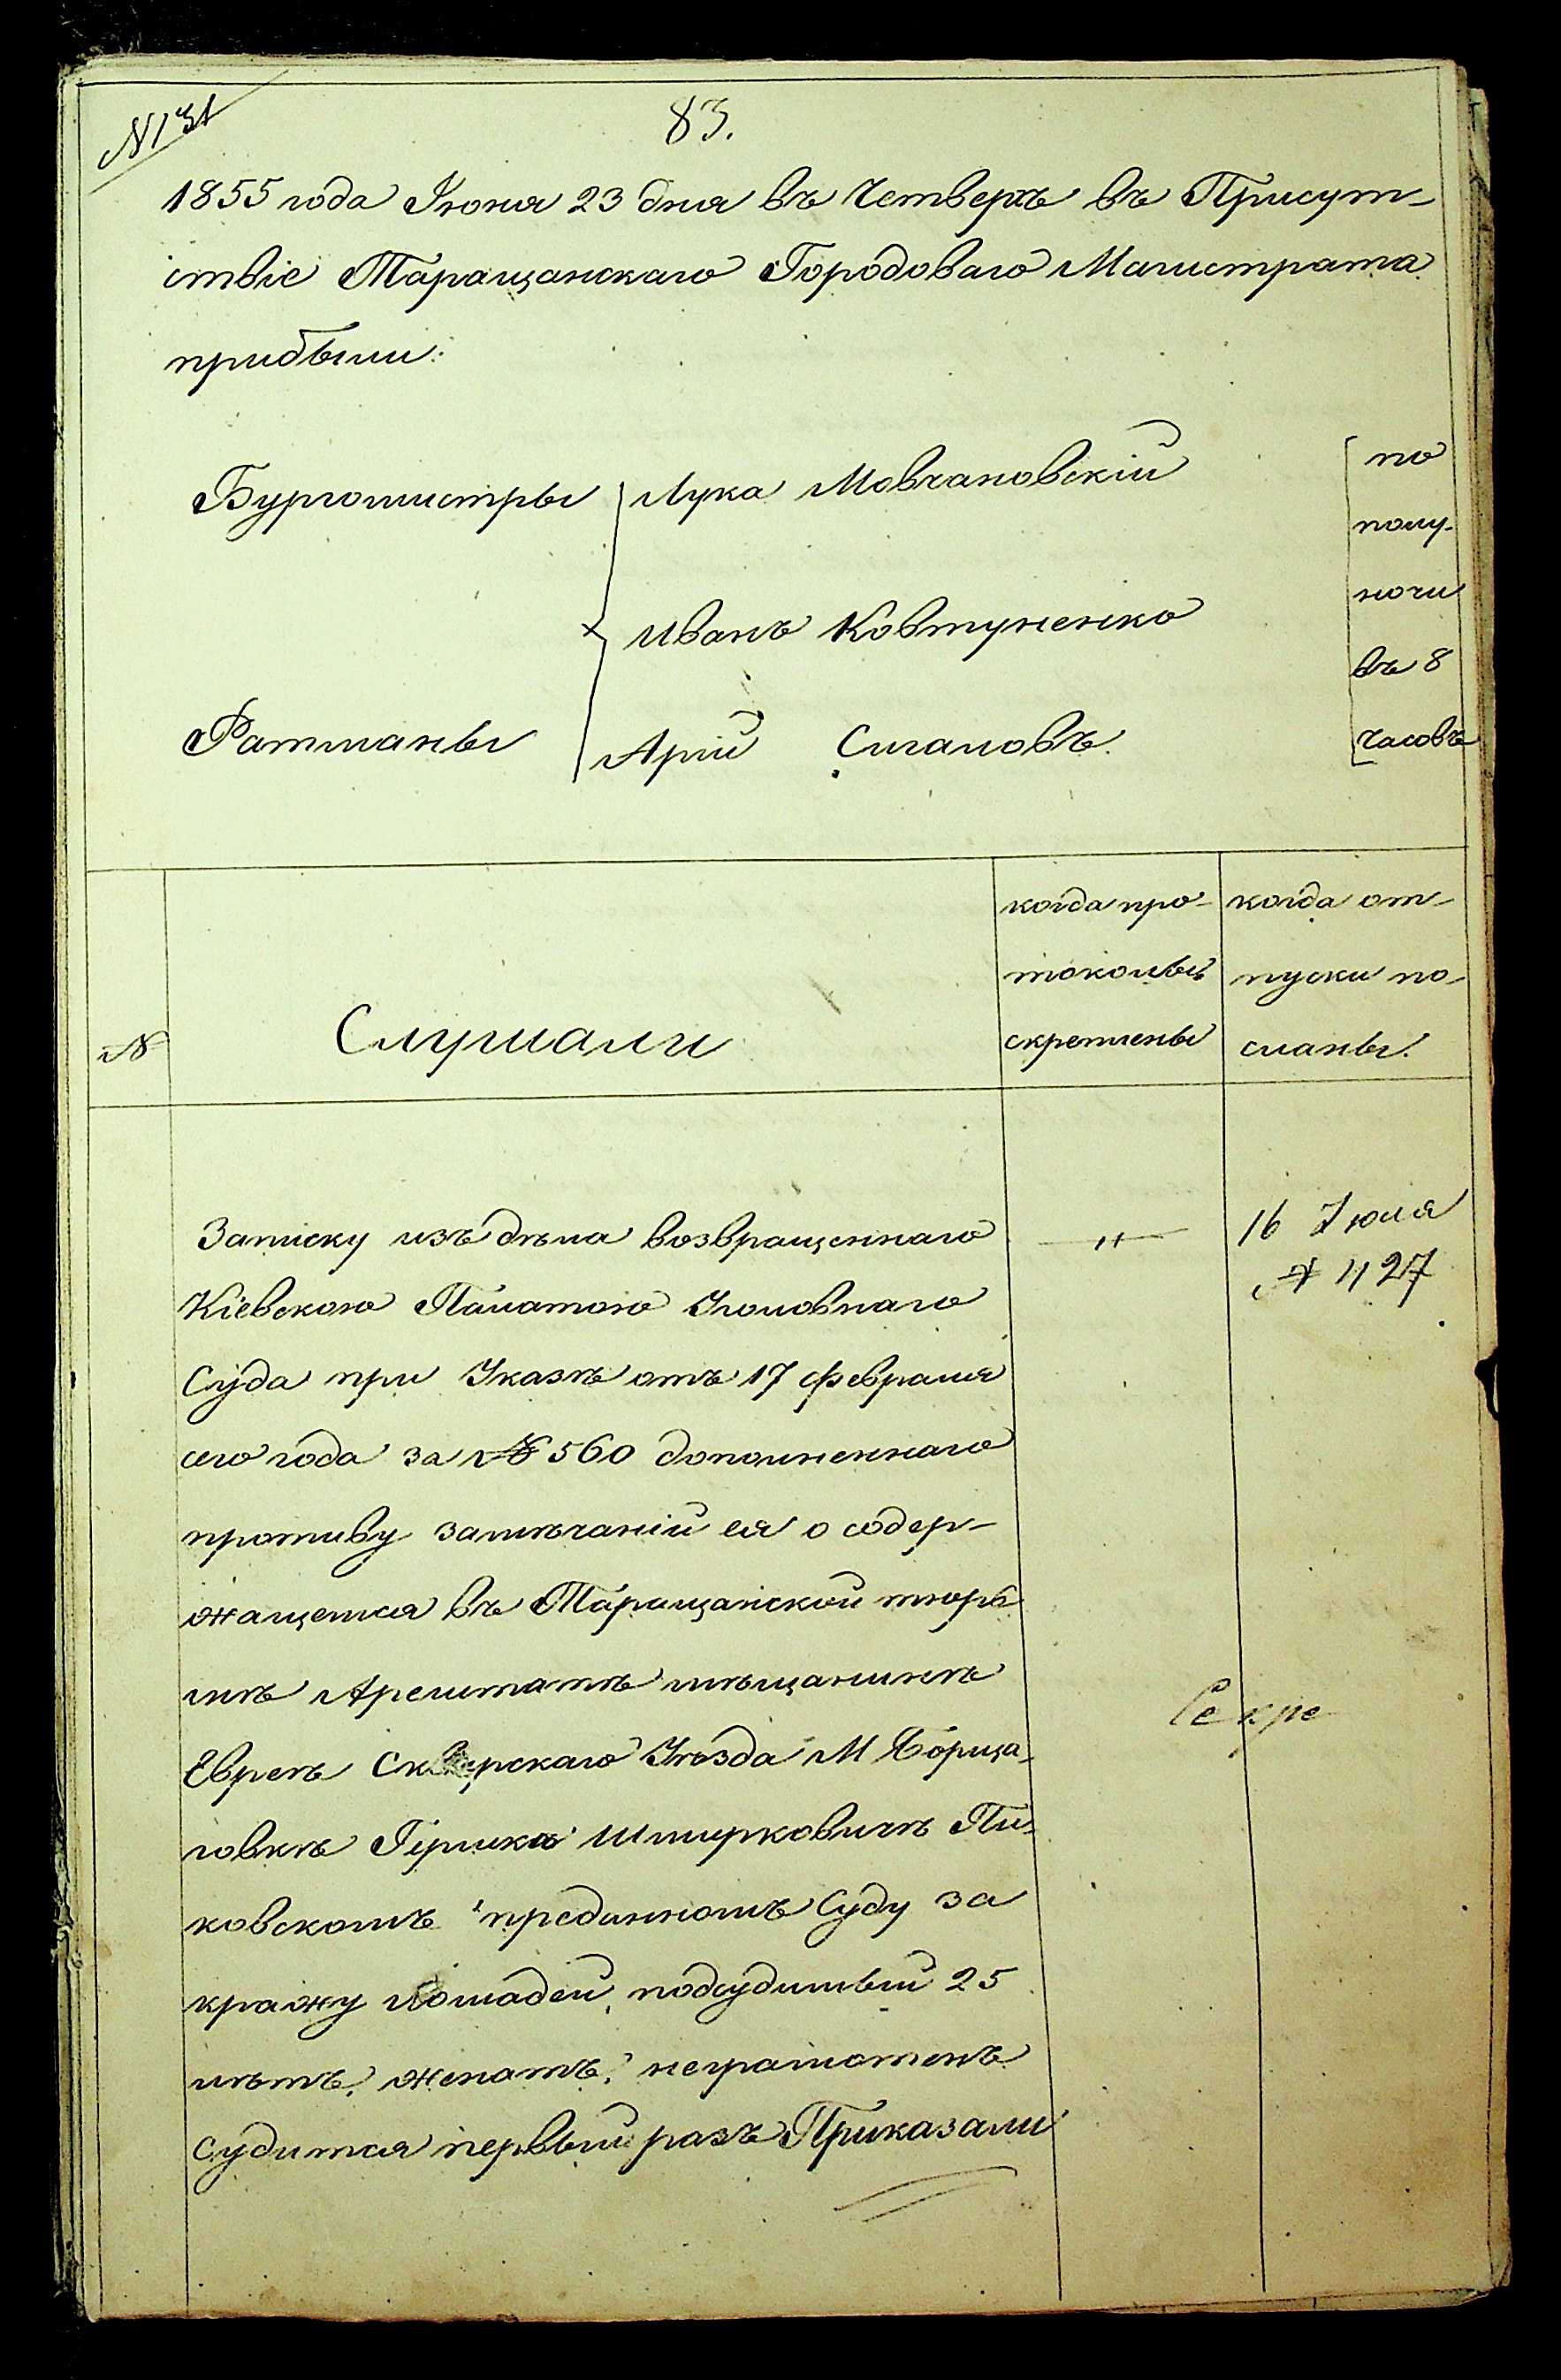 № 131
83.
1855 года Іюня 23 дня въ Четвергъ въ Присут-
ствіе Таращанскаго Городоваго Магистрата
прибыли:
Бургомистры Лука Мовчановскій
Иванъ Ковтуненко
Ратманы Арій Сигаловъ.
по
полу-
ночи
въ 8
часовъ
№
Слушали
когда про-
токолы
скреплены
когда от-
пуски по-
сланы.
Записку изъ дѣла возвращеннаго
Кіевскою Палатою Уголовнаго
Суда при Указѣ отъ 17 февраля
сего года за № 560 дополненнаго
противу замѣчаній ея о содер-
жащемся въ Таращанской тюрь
мѣ Арештантѣ мѣщанинѣ
Евреѣ Сквирскаго Уѣзда М Борща-
говкѣ Гершкѣ Шмирковичѣ Пи-
ковскомъ преданномъ Суду за
кражу лошадей, подсудимый 25
лѣтъ, женатъ, неграмотенъ
судится первый разъ Приказали
"
16 Іюля
№ 1127
Секре